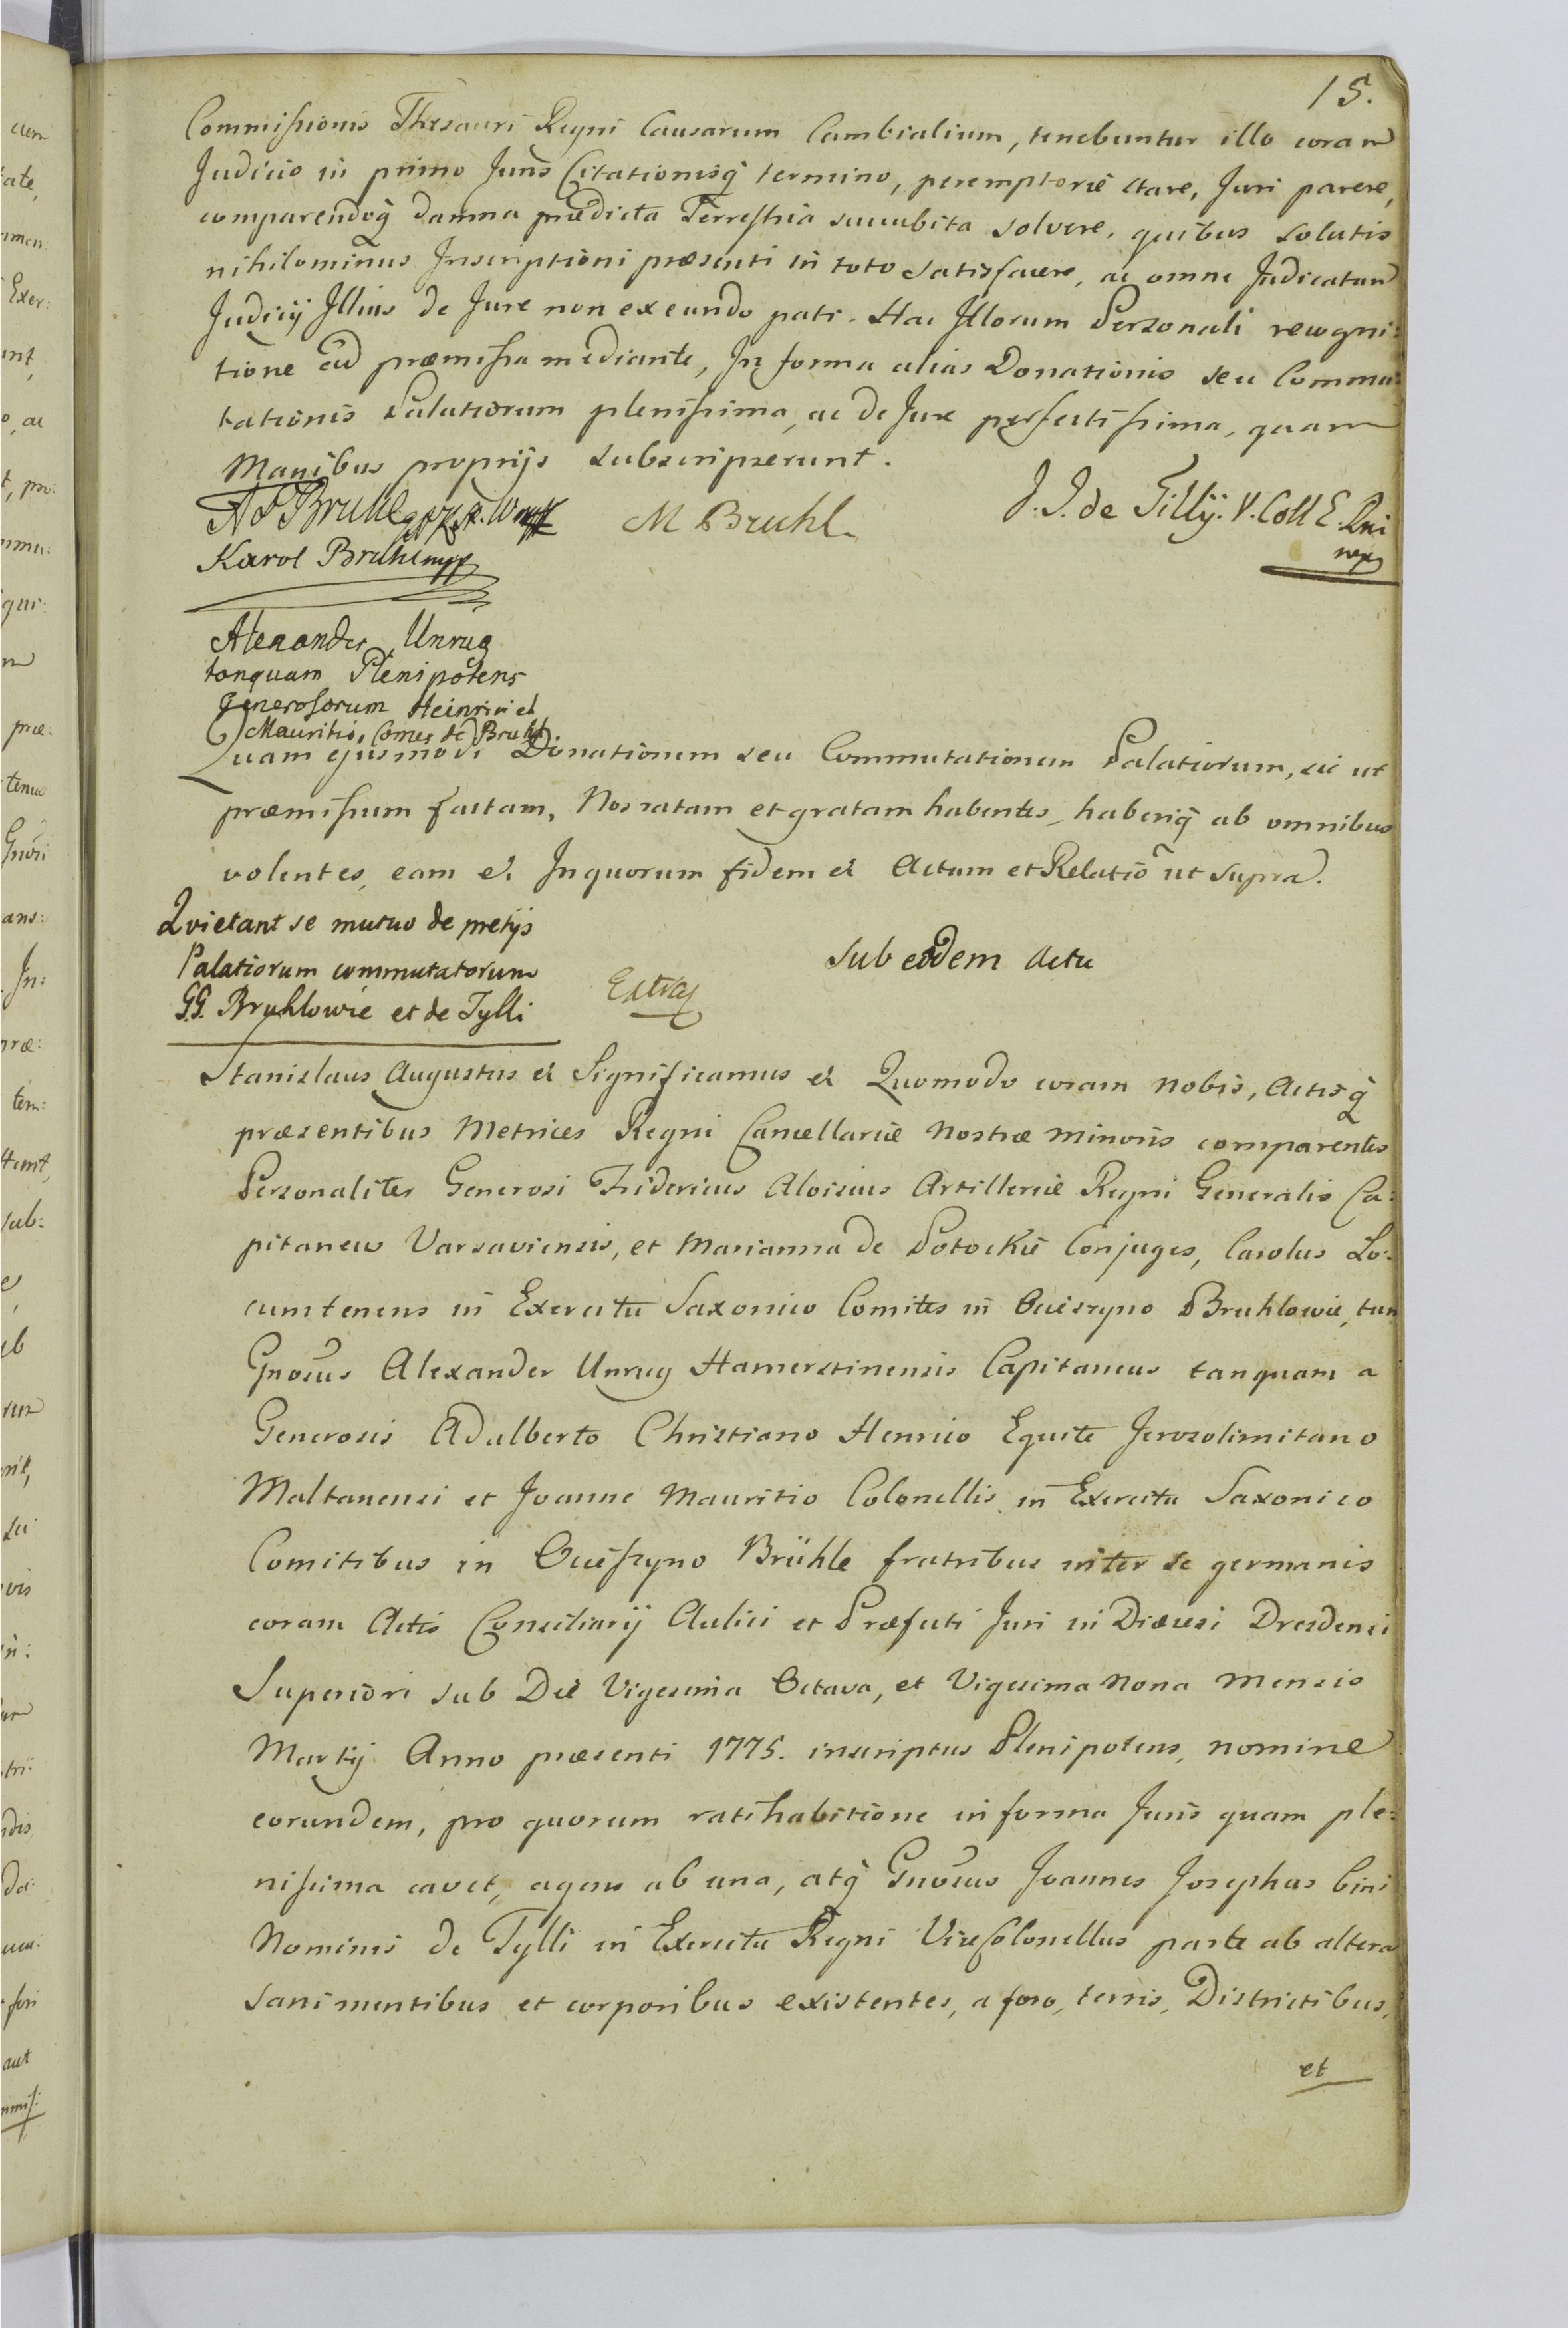 15.
Commissionis Thesauri Regni Causarum Cambialium, tenebuntur illo coram
Judicio in primo Juris Citationisq̃ termino, peremptoriè stare, Juri parere,
comparendoq̃ damna prædicta Terrestria succubita solvere, quibus solutis
nihilominus Inscriptioni præsenti in toto satisfacere, ac omne Judicatum
Judicij Illius de Jure non exeundo pati. Hac Illorum Personali recogni:
tione ad præmissa mediante, In forma alias Donationis seu Commu:
tationis Palatiorum plenissima, ac de Jure perfectissima, quam
Manibus proprijs subscripserunt.
A F Bruhl
M Bruhl
J. J. de Tillÿ. V. Coll E. Rni
mpp
Karol Bruhl mpp
Alexander Unrug
tanquam Plenipotens
Generosorum Heinrici et
Mauritio, Comes de Bruhl
Quam ejusmodi Donationem seu Commutationem Palatiorum, sic ut
præmissum factam, Nos ratam et gratam habentes, haberiq̃ ab omnibus
volentes, eam &. In quorum fidem & Actum et Relatio ut supra.
Qvietant se mutuo de pretijs
Palatiorum commutatorum
G.G. Bruhlowie et de Tylli
Extra
Sub eodem Actu
Stanislaus Augustus & Significamus & Quomodo coram nobis, Actisq̃
præsentibus Metrices Regni Cancellariæ Nostræ Minoris comparentes
Personaliter Generosi Fridericus Aloisius Artilleriæ Regni Generalis Ca:
pitaneus Varsaviensis, et Marianna de Potockie Conjuges, Carolus Lo:
cumtenens in Exercitu Saxonico Comites in Ocieszyno Bruhlowie, tum
Gnosus Alexander Unrug Hamerstinensis Capitaneus tanquam a
Generosis Adalberto Christiano Henrico Equite Jerozolimitano
Maltanensi et Joanne Mauritio Colonellis in Exercitu Saxonico
Comitibus in Ociessyno Brühle fratribus inter se germanis
coram Actis Consiliarij Aulici et Præfecti Juri in Diæcesi Dresdensi
Superiori sub Die Vigesima Octava, et Vigesima Nona Mensis
Martij Anno præsenti 1775. inscriptus Plenipotens, nomine
eorundem, pro quorum ratihabitione in forma Juris quam ple:
nissima cavet, agens ab una, atq̃ Gnosus Joannes Josephus bini
Nominis de Tylli in Exercitu Regni ViceColonellus parte ab altera
sani mentibus et corporibus existentes, a foro, terris, Districtibus,
et